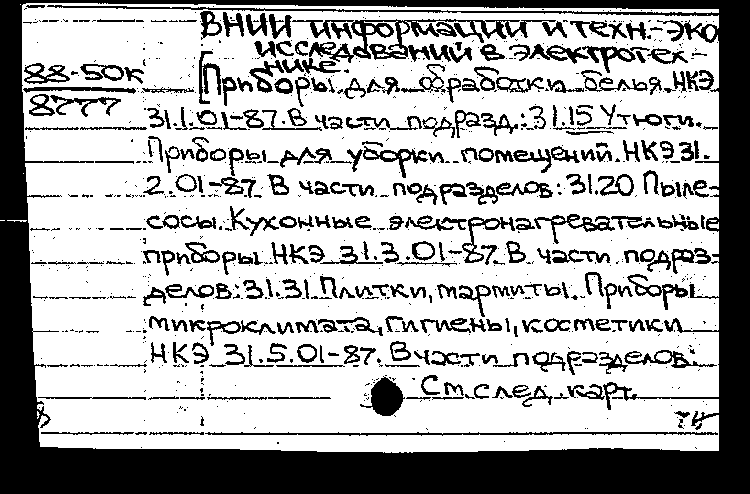 ВНИИ информации и техн.-эко
исследований в электротех-
нике.
88-50к
8777
[Приборы для обработки белья НКЭ
31.1.01-87. В части подразд.: 31.15 Утюги.
Приборы для уборки помещений НКЭ 31.
2.01-87. В части подразделов: 31.20 Пыле-
сосы. Кухонные электронагревательные
приборы НКЭ 31.3.01-87. В части подраз-
делов: 31.31 Плитки, мармиты. Приборы
микроклимата, гигиены, косметики
НКЭ 31.5.01-87. В части подразделов:
См. след. карт.